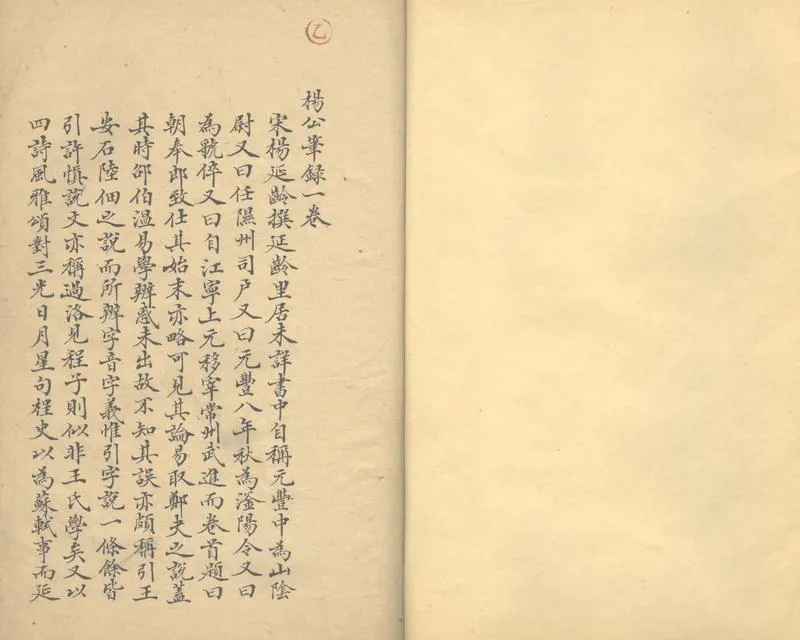 乙
楊公筆録一卷
宋楊延齡撰延齡里居未詳書中自稱元豐中為山陰
尉又曰任隰州司户又曰元豐八年秋為滏陽令又曰
為虢倅又曰自江寧上元移宰常州武進而卷首題曰
朝奉郎致仕其始末亦略可見其論易取鄭夬之說蓋
其時邵伯温易學辨惑未出故不知其誤亦頗稱引王
安石陸佃之說而所辨字音字義惟引字說一條餘皆
引許慎說文亦稱過洛見程子則似非王氏學矣又以
四詩風雅頌對三光日月星句桯史以為蘇軾事而延